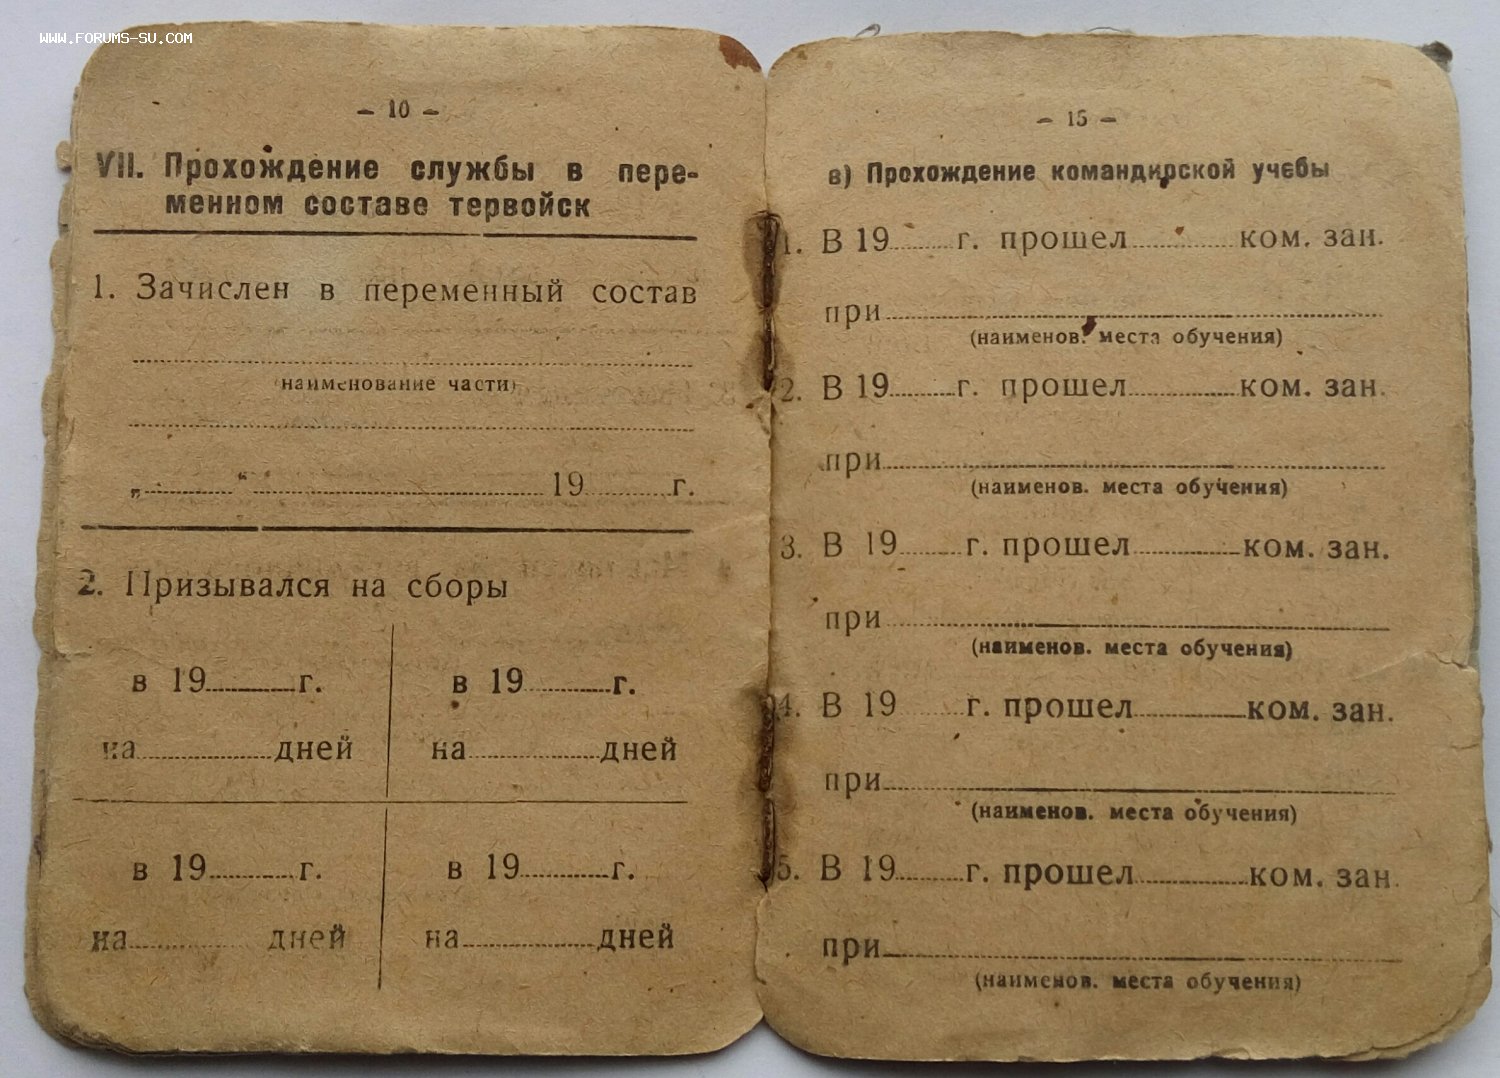 WWW.FORUMS-SU.COM
– 10 –
VII. Прохождение службы в пере-
менном составе тервойск
1. Зачислен в переменный состав
(наименование части)
„ “ 19 г.
2. Призывался на сборы
в 19 г. в 19 г.
на дней на дней
в 19 г. в 19 г.
на дней на дней
– 15 –
в) Прохождение командирской учебы
1. В 19 г. прошел ком. зан.
при
(наименов. места обучения)
2. В 19 г. прошел ком. зан.
при
(наименов. места обучения)
3. В 19 г. прошел ком. зан.
при
(наименов. места обучения)
4. В 19 г. прошел ком. зан.
при
(наименов. места обучения)
5. В 19 г. прошел ком. зан.
при
(наименов. места обучения)